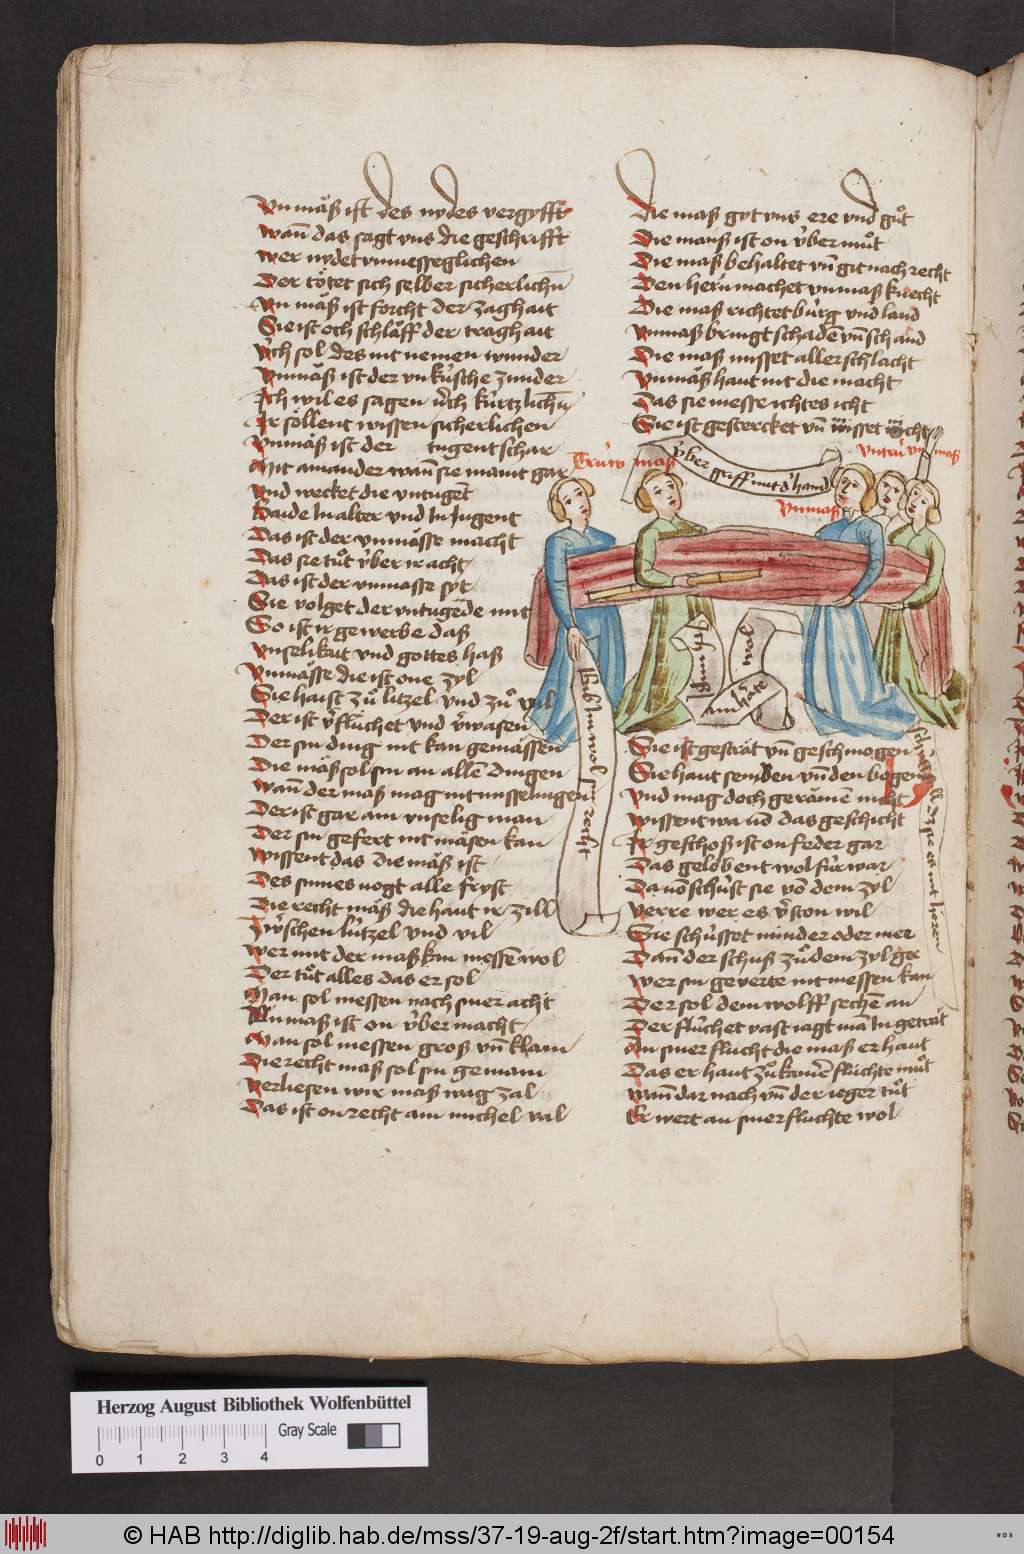 Vnmäß ist des nydes vergyfft
Wan̄ das sagt vns die geschrifft
Wer nydet vnmesseglichen
Der tötet sich selber sicherlichn̄
Vn mäß ist forcht der zaghait
Sie ist och schläff der traghait
Vch sol des nit nemen wunder
Vnmäß ist der vnkúsche zunder
Ich wil es sagen v́ch kúrtzlichn̄
Ir söllent wissen sicherlichen
Vnmäß ist der tugent schar
Mit ainander wan̄ sie maint gar
Vnd wecket die vntugēt
Baide In alter vnd In Jugent
Das ist der vnmässe macht
Das sie tuͦt v́ber ir acht
Das ist der vnmasse syt
Sie volget der vntugēde mit
So ist ir gewerbe daß
Vnselikait vnd gottes haß
Vnmässe die ist one zyl
Sie haist zuͦ litzel vnd zuͦ vil
Der ist v̓flúchet vnd v̓wasen
Der sin ding nit kan gemässen
Die mäß sol sin an allē dingen
Wan̄ der maß mag nit misselingen
Der ist gar ain vnselig man
Der sin gefert nit mäsen kan
Wissent das die mäß ist
Des sinnes vogt alle fryst
Die recht mäß die haut ir zill
Zwischen lútzel vnd vil
Wer mit der maß kan messē wol
Der tuͦt alles das er sol
Man sol messen nach siner acht
Vnmaß ist on v́ber macht
Man sol messen groß vn̄ klain
Die recht maß sol sin gemain
Verliesen wir maß wag zal
Das ist on recht ain michel val
Die maß gyt vns ere vnd guͦt
Die mauß ist on v́ber muͦt
Die maß behaltet vn̄ git nach recht
Den hern̄ machet vnmaß knecht
Die maß richtet búrg vnd land
Vnmaß bringt schadē vn̄ schand
Die maß misset aller schlacht
Vnmäß haut nit die macht
Das sie messe ichtes icht
Sie ist gestercket vn̄ wisset nicht
Trúw maß
v́ber griff mit d' hand
vntrú vn maß
vnmaß
Ich mich
wol
am hāte
Hab In wol zu recht
Sie ist gesträt vn̄ geschmogen
Sie haut seniben vn̄ den bogen
Vnd mag doch gerämen nicht
Wissent wa vō das geschicht
Ir geschoß ist on feder gar
Das gelobent wol fúr war
Da vō schúst sie vō dem zyl
Verre wer es v̓ston wil
Sie schússet minder oder mere
Dan̄ der schuß zuͦ dem zyl ger
Wer sin geverte nit messen kan
Der sol dem wolff sechē an
Der flúchet vast iagt mā In geträt
An siner flucht die maß er haut
Das er haut zuͦ kainē flúchte muͦt
Wan̄ dar nach vn̄ der ieger tuͦt
Er wert an siner fluchte wol
Herzog August Bibliothek Wolfenbüttel
Gray Scale
0 1 2 3 4
© HAB http://diglib.hab.de/mss/37-19-aug-2f/start.htm?image=00154
WDB